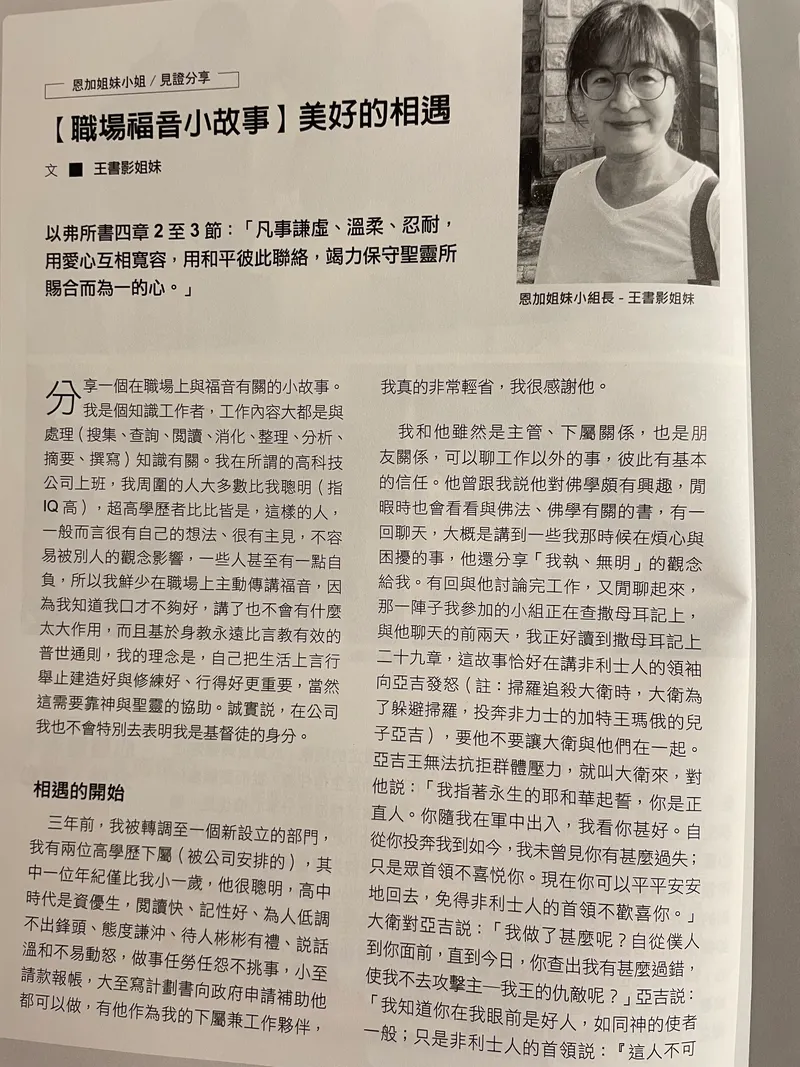 恩加姐妹小姐 / 見證分享
【職場福音小故事】美好的相遇
文 ■ 王書影姐妹
以弗所書四章 2 至 3 節：「凡事謙虛、溫柔、忍耐，
用愛心互相寬容，用和平彼此聯絡，竭力保守聖靈所
賜合而為一的心。」
恩加姐妹小組長 - 王書影姐妹
分享一個在職場上與福音有關的小故事。
我是個知識工作者，工作內容大都是與
處理（搜集、查詢、閱讀、消化、整理、分析、
摘要、撰寫）知識有關。我在所謂的高科技
公司上班，我周圍的人大多數比我聰明（指
IQ 高），超高學歷者比比皆是，這樣的人，
一般而言很有自己的想法、很有主見，不容
易被別人的觀念影響，一些人甚至有一點自
負，所以我鮮少在職場上主動傳講福音，因
為我知道我口才不夠好，講了也不會有什麼
太大作用，而且基於身教永遠比言教有效的
普世通則，我的理念是，自己把生活上言行
舉止建造好與修練好、行得好更重要，當然
這需要靠神與聖靈的協助。誠實説，在公司
我也不會特別去表明我是基督徒的身分。
相遇的開始
三年前，我被轉調至一個新設立的部門，
我有兩位高學歷下屬（被公司安排的），其
中一位年紀僅比我小一歲，他很聰明，高中
時代是資優生，閱讀快、記性好、為人低調
不出鋒頭、態度謙沖、待人彬彬有禮、説話
溫和不易動怒，做事任勞任怨不挑事，小至
請款報帳，大至寫計劃書向政府申請補助他
都可以做，有他作為我的下屬兼工作夥伴，
我真的非常輕省，我很感謝他。
我和他雖然是主管、下屬關係，也是朋
友關係，可以聊工作以外的事，彼此有基本
的信任。他曾跟我説他對佛學頗有興趣，閒
暇時也會看看與佛法、佛學有關的書，有一
回聊天，大概是講到一些我那時候在煩心與
困擾的事，他還分享「我執、無明」的觀念
給我。有回與他討論完工作，又閒聊起來，
那一陣子我參加的小組正在查撒母耳記上，
與他聊天的前兩天，我正好讀到撒母耳記上
二十九章，這故事恰好在講非利士人的領袖
向亞吉發怒（註：掃羅追殺大衛時，大衛為
了躲避掃羅，投奔非力士的加特王瑪俄的兒
子亞吉），要他不要讓大衛與他們在一起。
亞吉王無法抗拒群體壓力，就叫大衛來，對
他説：「我指著永生的耶和華起誓，你是正
直人。你隨我在軍中出入，我看你甚好。自
從你投奔我到如今，我未曾見你有甚麼過失；
只是眾首領不喜悦你。現在你可以平平安安
地回去，免得非利士人的首領不歡喜你。」
大衛對亞吉説：「我做了甚麼呢？自從僕人
到你面前，直到今日，你查出我有甚麼過錯，
使我不去攻擊主─我王的仇敵呢？」亞吉説：
「我知道你在我眼前是好人，如同神的使者
一般；只是非利士人的首領説：『這人不可